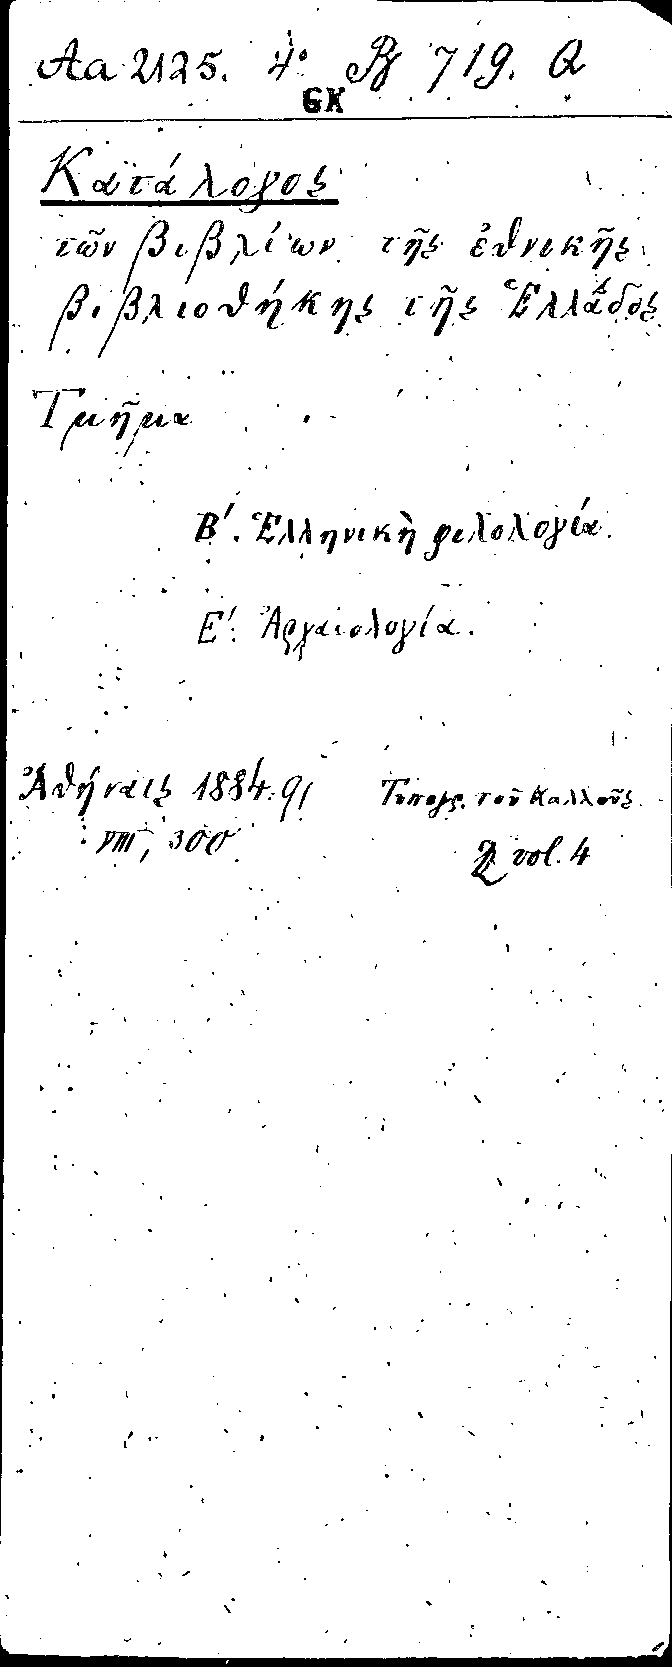 Aa 2125. 4° Pf 719. Q
GK
Κατάλογος
τῶν βιβλίων τῆς ἐθνικῆς
βιβλιοθήκης τῆς Ἑλλάδος
Τμῆμα
Β'. Ἑλληνικὴ φιλολογία.
Ε'. Ἀρχαιολογία.
Ἀθήναις 1884.91 Τυπογρ. τοῦ Καλλοῦς
VIII, 300 vol. 4